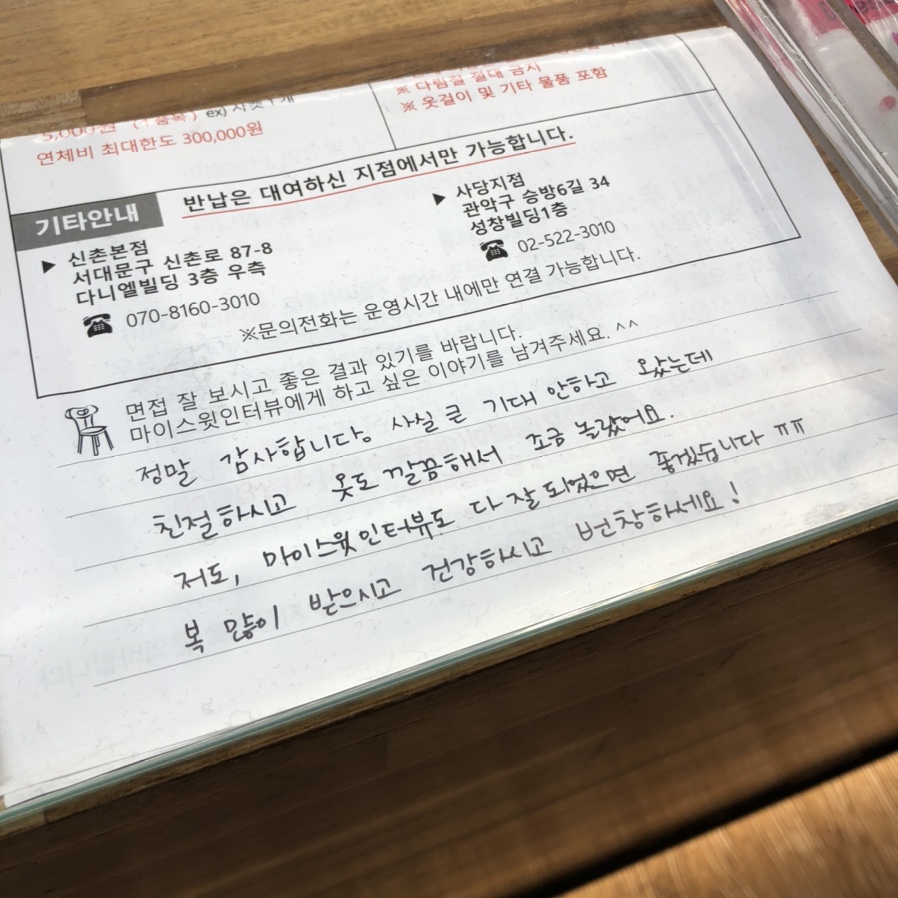 5,000원 (1품목) ex) 자켓 1개
연체비 최대한도 300,000원
※ 다림질 절대 금지
※ 옷걸이 및 기타 물품 포함
반납은 대여하신 지점에서만 가능합니다.
기타안내
▶ 신촌본점
서대문구 신촌로 87-8
다니엘빌딩 3층 우측
☎ 070-8160-3010
▶ 사당지점
관악구 승방6길 34
성창빌딩1층
☎ 02-522-3010
※문의전화는 운영시간 내에만 연결 가능합니다.
면접 잘 보시고 좋은 결과 있기를 바랍니다.
마이스윗인터뷰에게 하고 싶은 이야기를 남겨주세요. ^^
정말 감사합니다. 사실 큰 기대 안하고 왔는데
친절하시고 옷도 깔끔해서 조금 놀랐어요.
저도, 마이스윗인터뷰도 다 잘 되었으면 좋겠습니다 ㅠㅠ
복 많이 받으시고 건강하시고 번창하세요!